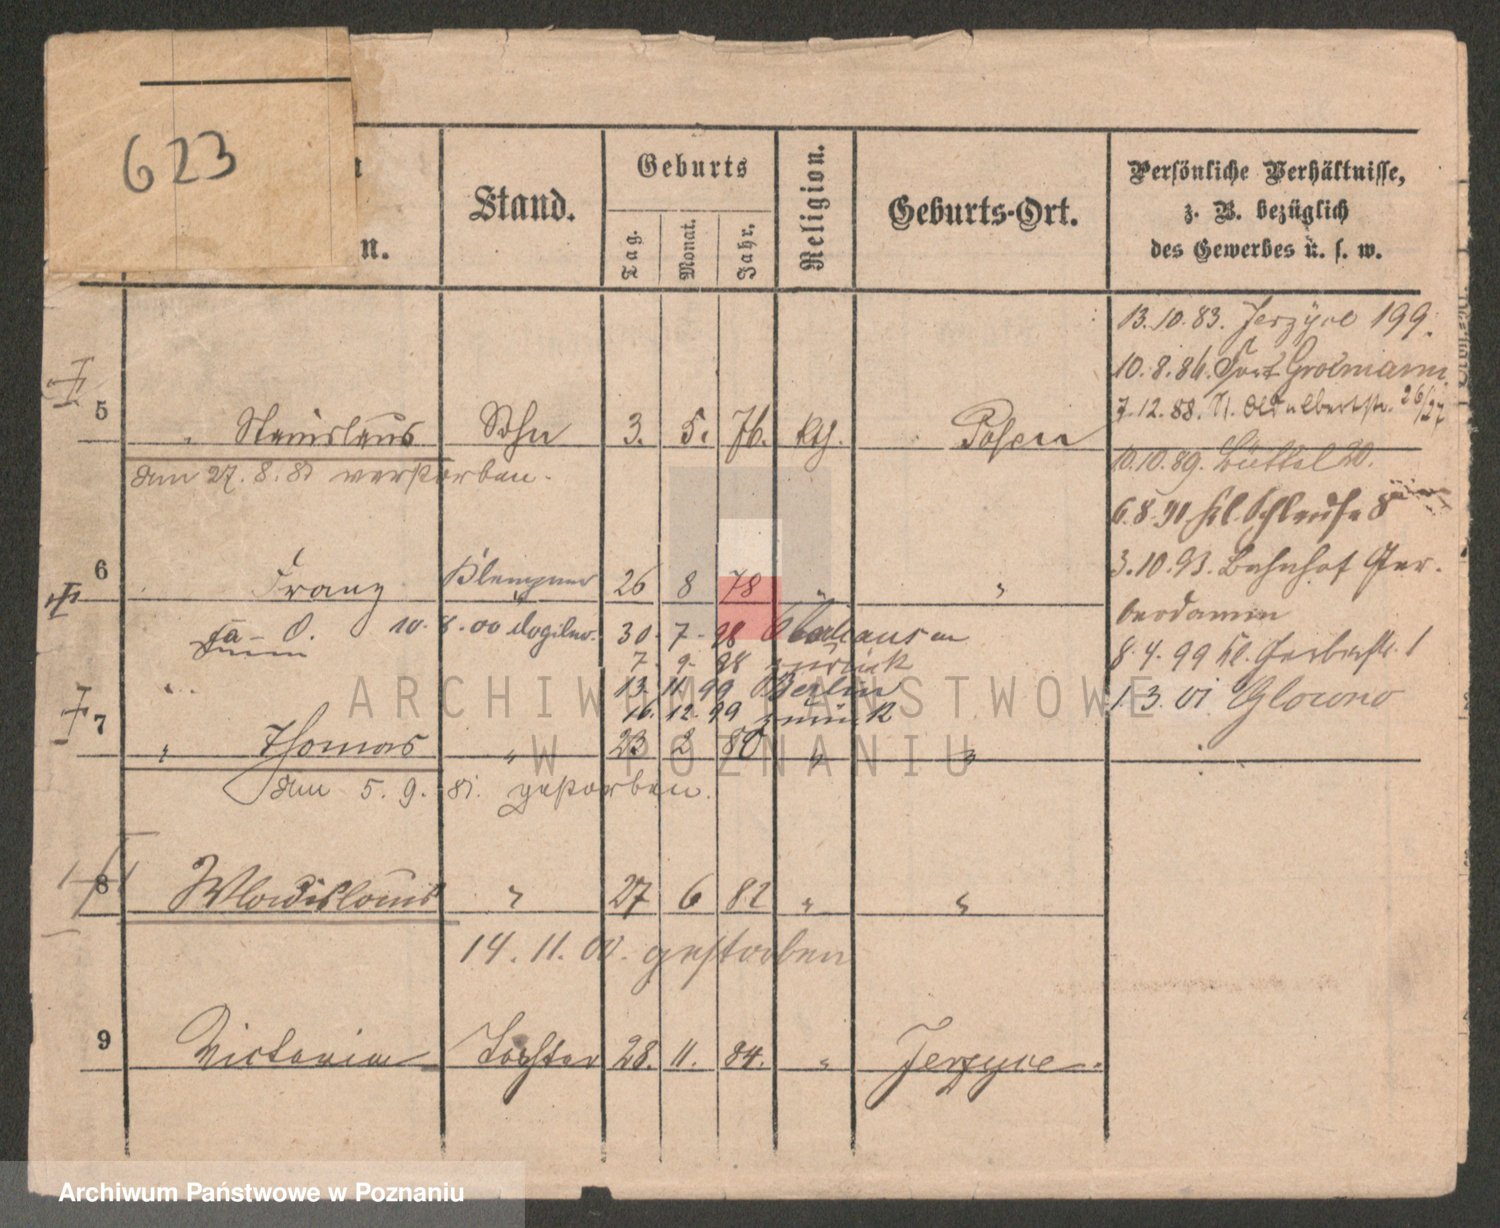 623
n.
Stand.
Geburts
Tag.
Monat.
Jahr.
Religion.
Geburts-Ort.
Persönliche Verhältnisse,
z. B. bezüglich
des Gewerbes u. s. w.
13.10.83. Jerzyce 199.
10.8.86. Fort Grolmann
7.12.88. 26/27
5 " Stanislaus Sohn 3. 5. 76. kth. Posen
am 27.8.81 verstorben.
10.10.89.
6.8.91 kl.
6 Franz Klempner 26 8 78 " "
3.10.93. Bahnhof Ger-
berdamm
10.8.00 30.7.98
7.9.98 zurück
8.4.99 kl. Gerberstr. 1
13.11.99 Berlin
16.12.99 zurück
1.3.01 Glowno
7 " Thomas " 23 2 80 " "
am 5.9.81. gestorben.
8 Wladislaus " 27 6 82 " "
14.11.00. gestorben
9 Victoria Tochter 28. 11. 84. " Jerzyce.
ARCHIWUM PAŃSTWOWE
W POZNANIU
Archiwum Państwowe w Poznaniu